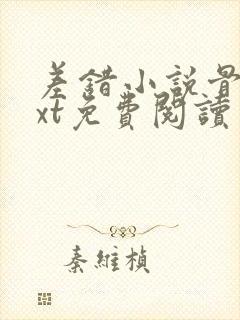 差錯小説骨
xt免費閱讀
秦維楨